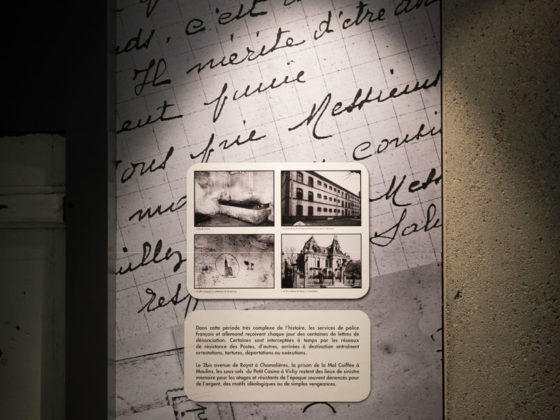 ds, c'est d
Il mérite d'être
ent punie
ous prie Messieurs
consi
Mess
uillez
Salu
resp
Dans cette période très complexe de l'histoire, les services de police
français et allemand reçoivent chaque jour des centaines de lettres de
dénonciation. Certaines sont interceptées à temps par les réseaux
de résistance des Postes, d'autres, arrivées à destination entraînent
arrestations, tortures, déportations ou exécutions.
Le 2bis avenue de Royat à Chamalières, la prison de la Mal Coiffée à
Moulins, les sous-sols du Petit Casino à Vichy restent des lieux de sinistre
mémoire pour les otages et résistants de l'époque souvent dénoncés pour
de l'argent, des motifs idéologiques ou de simples vengeances.